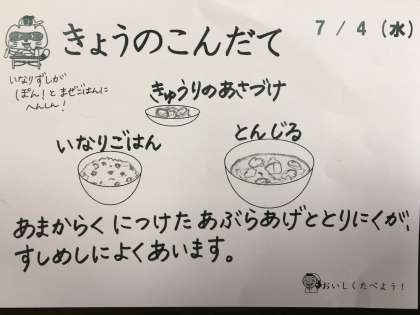 きょうのこんだて
7/4(水)
いなりずしが
ぽん!と まぜごはんに
へんしん!
きゅうりのあさづけ
いなりごはん
とんじる
あまからく につけた あぶらあげととりにくが、
すしめしによくあいます。
おいしくたべよう!